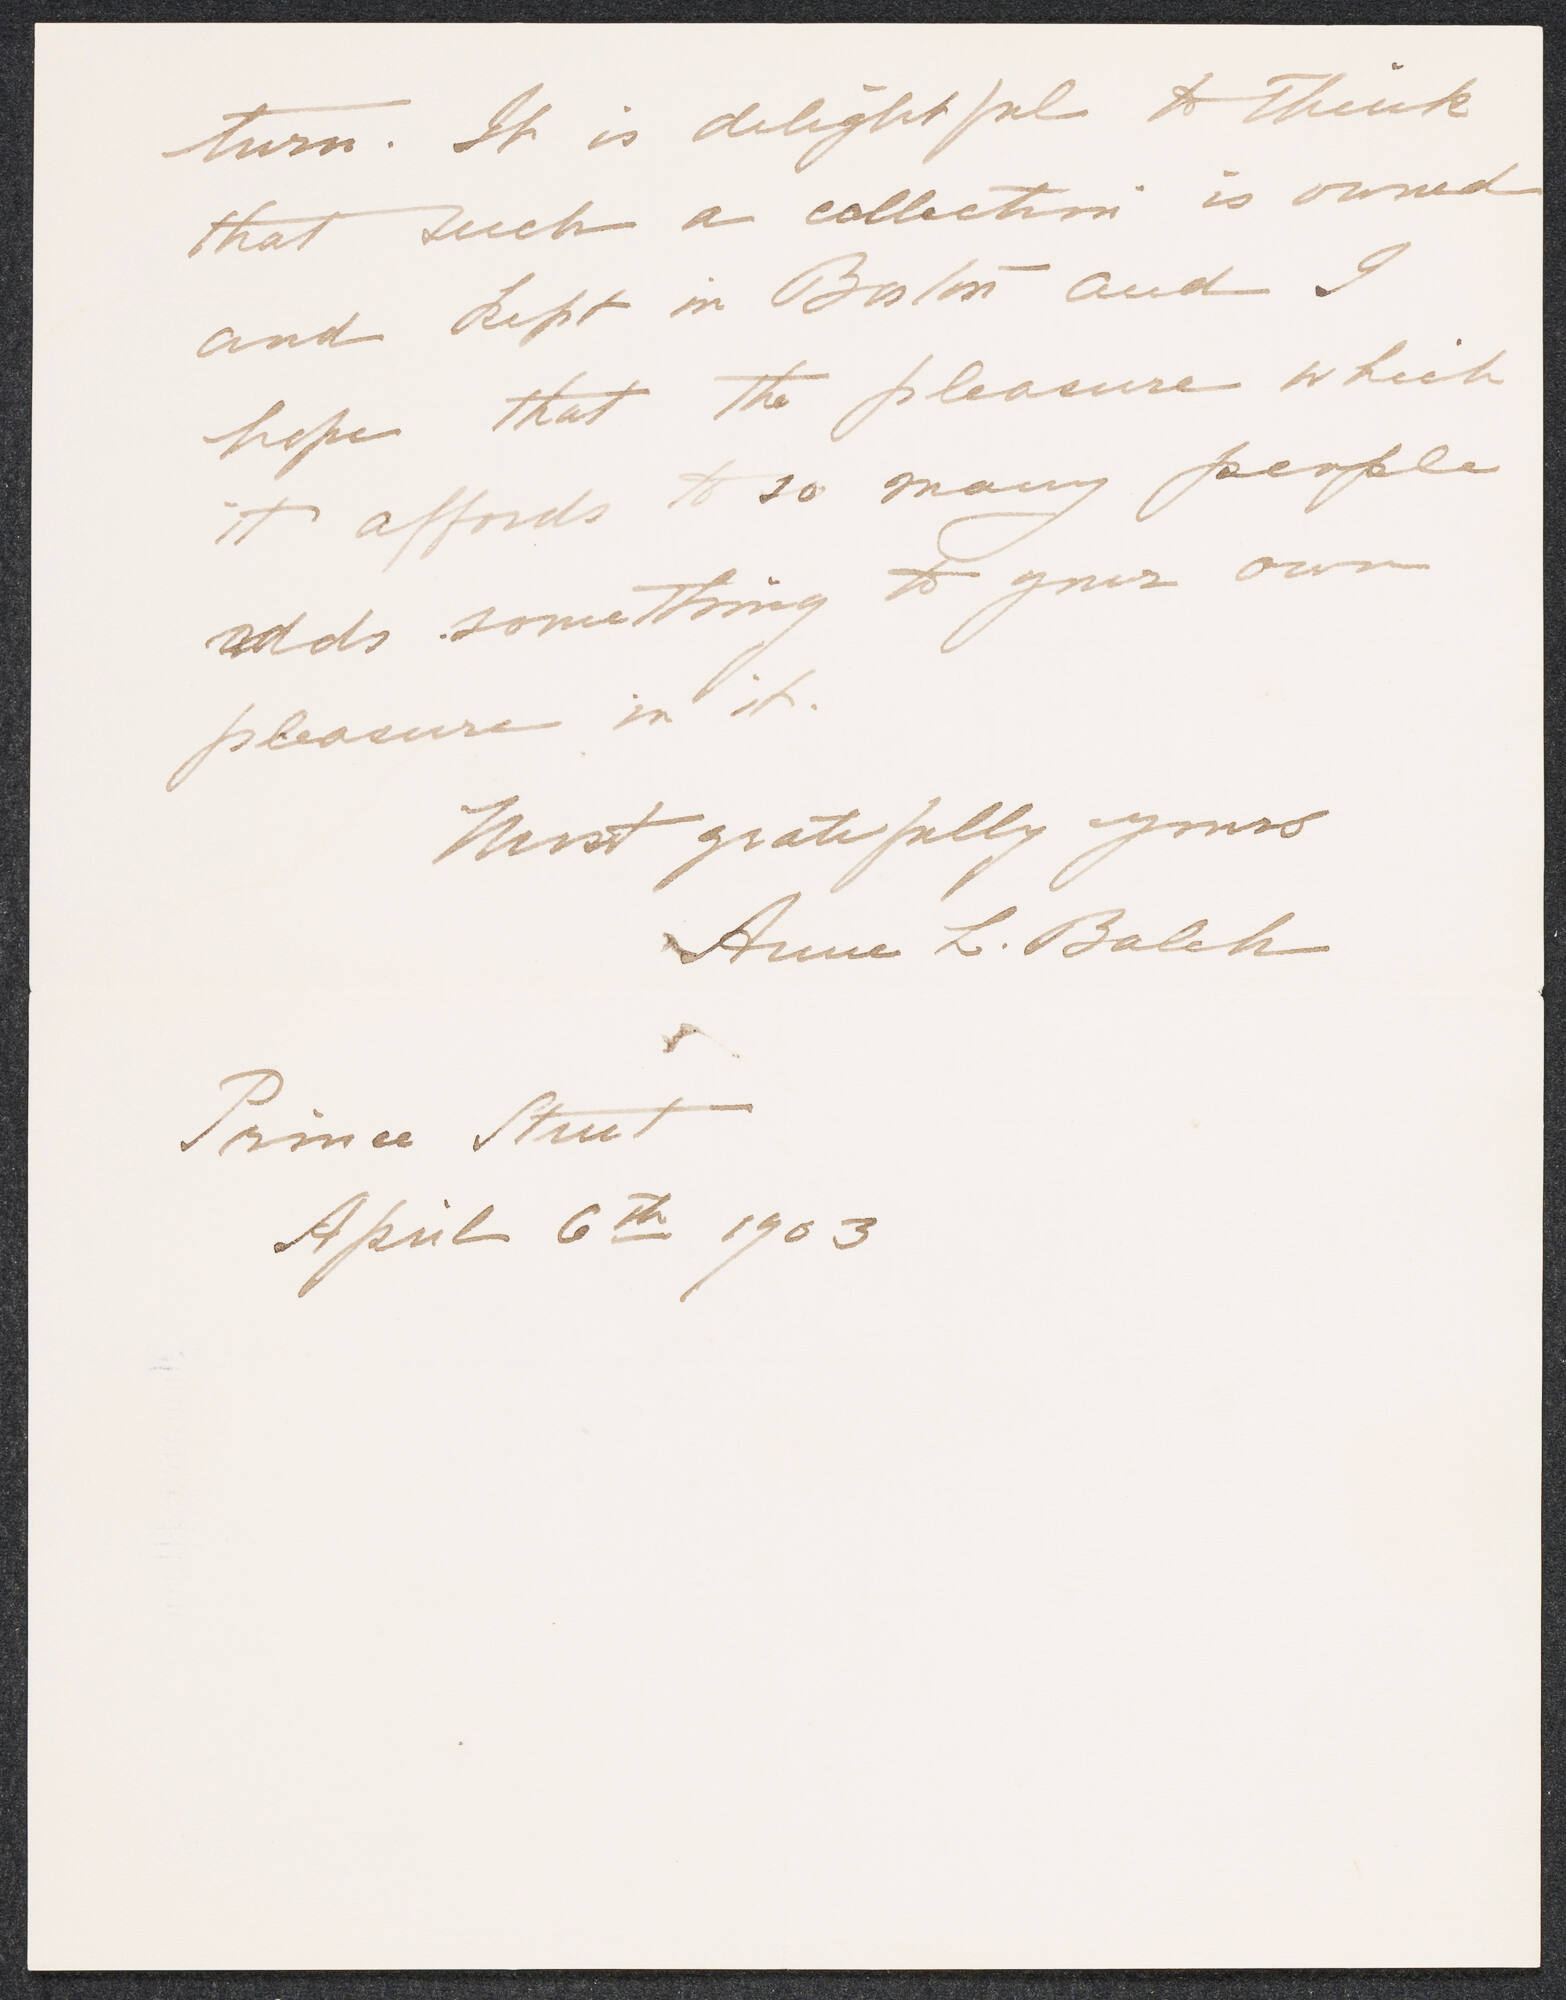 turn. It is delightful to think
that such a collection is owned
and kept in Boston and I
hope that the pleasure which
it affords to so many people
adds something to your own
pleasure in it.
Most gratefully yours
Anne L. Balch
Prince Street
April 6th 1903